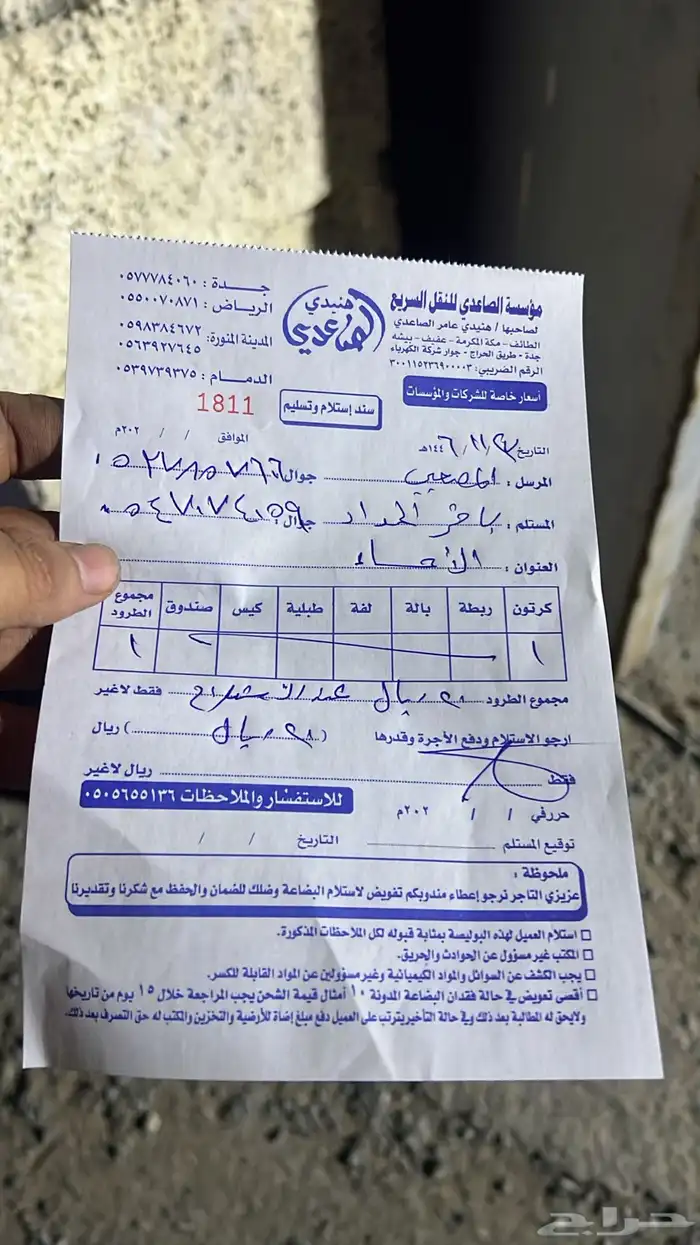 مؤسسة الصاعدي للنقل السريع
لصاحبها / هنيدي عامر الصاعدي
الطائف - مكة المكرمة - عفيف - بيشه
جدة - طريق الحراج - جوار شركة الكهرباء
الرقم الضريبي: ٣٠٠١١٥٢٣٦٩٠٠٠٠٣
أسعار خاصة للشركات والمؤسسات
هنيدي
الصاعدي
جدة : ٠٥٧٧٧٨٤٠٦٠
الرياض : ٠٥٥٠٠٧٠٨٧١
المدينة المنورة: ٠٥٩٨٣٨٤٦٧٢
٠٥٦٣٩٢٧٦٤٥
الدمام : ٠٥٣٩٧٣٩٣٧٥
سند إستلام وتسليم
1811
التاريخ / ١١ / ١٤٤٦هـ الموافق / / ٢٠٢م
المرسل : جوال
المستلم : باقر الحداد جوال:
العنوان : الأحساء
كرتون ربطة بالة لفة طبلية كيس صندوق مجموع الطرود
١ ١
مجموع الطرود ريال فقط لاغير
ارجو الاستلام ودفع الأجرة وقدرها ( ريال ) ريال
فقط ريال لاغير
للاستفسار والملاحظات ٠٥٠٥٦٥٥١٣٦
حرر في / / ٢٠٢م
توقيع المستلم التاريخ / /
ملحوظة :
عزيزي التاجر نرجو إعطاء مندوبكم تفويض لاستلام البضاعة وضلك للضمان والحفظ مع شكرنا وتقديرنا
استلام العميل لهذه البوليصة بمثابة قبوله لكل الملاحظات المذكورة.
المكتب غير مسؤول عن الحوادث والحريق.
يجب الكشف عن السوائل والمواد الكيميائية وغير مسؤولين عن المواد القابلة للكسر.
أقصى تعويض في حالة فقدان البضاعة المدونة ١٠ أمثال قيمة الشحن يجب المراجعة خلال ١٥ يوم من تاريخها
ولايحق له المطالبة بعد ذلك وفي حالة التأخير يترتب على العميل دفع مبلغ إضاة للأرضية والتخزين والمكتب له حق التصرف بعد ذلك.
حراج